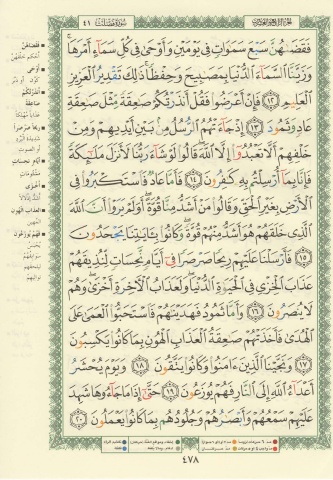 الجزء الرابع والعشرون
سورة فصلت ٤١
فَقَضَىٰهُنَّ سَبْعَ سَمَٰوَاتٍ فِى يَوْمَيْنِ وَأَوْحَىٰ فِى كُلِّ سَمَآءٍ أَمْرَهَا
وَزَيَّنَّا ٱلسَّمَآءَ ٱلدُّنْيَا بِمَصَٰبِيحَ وَحِفْظًا ذَٰلِكَ تَقْدِيرُ ٱلْعَزِيزِ
ٱلْعَلِيمِ ١٢ فَإِنْ أَعْرَضُوا۟ فَقُلْ أَنذَرْتُكُمْ صَٰعِقَةً مِّثْلَ صَٰعِقَةِ
عَادٍ وَثَمُودَ ١٣ إِذْ جَآءَتْهُمُ ٱلرُّسُلُ مِنۢ بَيْنِ أَيْدِيهِمْ وَمِنْ
خَلْفِهِمْ أَلَّا تَعْبُدُوٓا۟ إِلَّا ٱللَّهَ قَالُوا۟ لَوْ شَآءَ رَبُّنَا لَأَنزَلَ مَلَٰٓئِكَةً
فَإِنَّا بِمَآ أُرْسِلْتُم بِهِۦ كَٰفِرُونَ ١٤ فَأَمَّا عَادٌ فَٱسْتَكْبَرُوا۟ فِى
ٱلْأَرْضِ بِغَيْرِ ٱلْحَقِّ وَقَالُوا۟ مَنْ أَشَدُّ مِنَّا قُوَّةً أَوَلَمْ يَرَوْا۟ أَنَّ ٱللَّهَ
ٱلَّذِى خَلَقَهُمْ هُوَ أَشَدُّ مِنْهُمْ قُوَّةً وَكَانُوا۟ بِـَٔايَٰتِنَا يَجْحَدُونَ
١٥ فَأَرْسَلْنَا عَلَيْهِمْ رِيحًا صَرْصَرًا فِىٓ أَيَّامٍ نَّحِسَاتٍ لِّنُذِيقَهُمْ
عَذَابَ ٱلْخِزْىِ فِى ٱلْحَيَوٰةِ ٱلدُّنْيَا وَلَعَذَابُ ٱلْءَاخِرَةِ أَخْزَىٰ وَهُمْ
لَا يُنصَرُونَ ١٦ وَأَمَّا ثَمُودُ فَهَدَيْنَٰهُمْ فَٱسْتَحَبُّوا۟ ٱلْعَمَىٰ عَلَى
ٱلْهُدَىٰ فَأَخَذَتْهُمْ صَٰعِقَةُ ٱلْعَذَابِ ٱلْهُونِ بِمَا كَانُوا۟ يَكْسِبُونَ
١٧ وَنَجَّيْنَا ٱلَّذِينَ ءَامَنُوا۟ وَكَانُوا۟ يَتَّقُونَ ١٨ وَيَوْمَ يُحْشَرُ
أَعْدَآءُ ٱللَّهِ إِلَى ٱلنَّارِ فَهُمْ يُوزَعُونَ ١٩ حَتَّىٰٓ إِذَا مَا جَآءُوهَا شَهِدَ
عَلَيْهِمْ سَمْعُهُمْ وَأَبْصَٰرُهُمْ وَجُلُودُهُم بِمَا كَانُوا۟ يَعْمَلُونَ ٢٠
٤٧٨